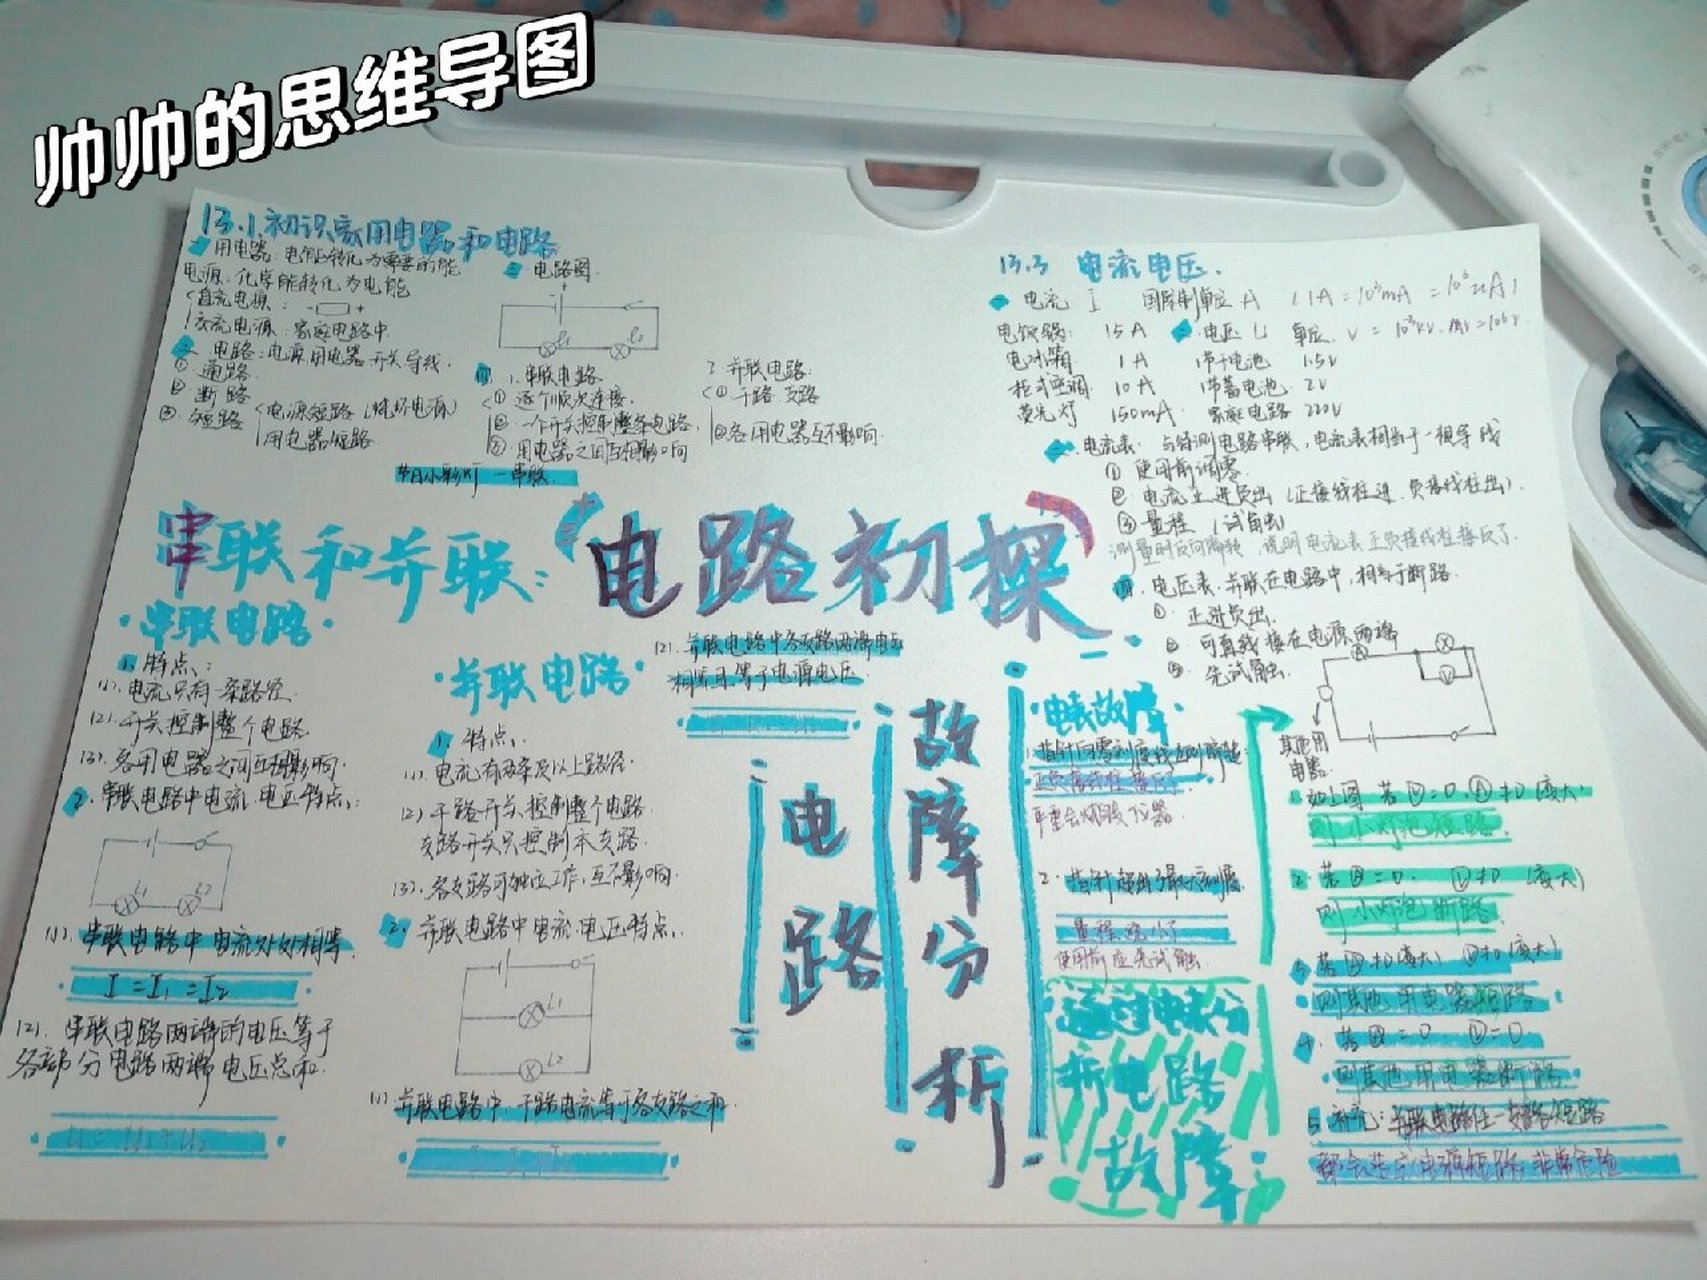 帅帅的思维导图
13.1.初识家用电器和电路
一 用电器:电能转化为需要的能
电源:化学能转化为电能
直流电源:
交流电源:家庭电路中
二 电路:电源 用电器 开关 导线.
① 通路.
② 断路
③ 短路 电源短路(烧坏电源)
用电器短路.
三 电路图.
L1 L2
四 1.串联电路.
① 逐个顺次连接.
② 一个开关控制整条电路.
③ 用电器之间互相影响
节日小彩灯 一串联.
2 并联电路.
① 干路 支路
② 各用电器互不影响.
13.3 电流电压.
一 电流 I 国际制单位 A
电饭锅: 15A
电冰箱 1A
柜式空调 10A
荧光灯 150mA.
二.电压 U 单位. V
1节干电池 1.5V
1节蓄电池 2V
家庭电路 220V
三.电流表: 与待测电路串联,电流表相当于一根导线
① 使用前调零.
② 电流正进负出(正接线柱进.负接线柱出).
③ 量程(试触)
测量时反向偏转,说明电流表正负接线柱接反了.
四.电压表.并联在电路中,相当于断路.
①. 正进负出.
② 可直线接在电源两端
③. 先试触.
串联和并联:“电路初探”
·串联电路·
1.特点:
(1).电流只有一条路径.
(2).开关控制整个电路.
(3).各用电器之间互相影响.
2.串联电路中电流.电压特点:
L1 L2
(1).串联电路中电流处处相等.
I=I1=I2
(2). 串联电路两端的电压等于
各部分电路两端电压总和.
U=U1+U2
·并联电路·
1.特点.
(1).电流有两条及以上路径.
(2)干路开关控制整个电路.
支路开关只控制本支路.
(3).各支路可独立工作,互不影响.
2.并联电路中电流.电压特点:
L1
L2
(1)并联电路中,干路电流等于各支路之和.
(2).并联电路中各支路两端电压
相等且等于电源电压.
电路
故障分析
·电表故障·
1.指针向零刻度线左侧偏转:
正负接线柱接反了.
严重会烧毁仪器.
2.指针超出了最大刻度.
量程选小了
使用前应先试触.
通过电表分
析电路
故障
A V
其他用
电器.
1.如上图 若Ⓥ=0.Ⓐ≠0(度大)
则小灯泡短路.
2.若Ⓐ=0. Ⓥ≠0(度大)
则小灯泡断路.
3.若Ⓐ≠0(度大) Ⓥ≠0(度大)
则其他用电器短路
4.若Ⓐ=0 Ⓥ=0
则其他用电器断路.
5.补充:并联电路任一支路短路
都会造成电源短路,非常危险